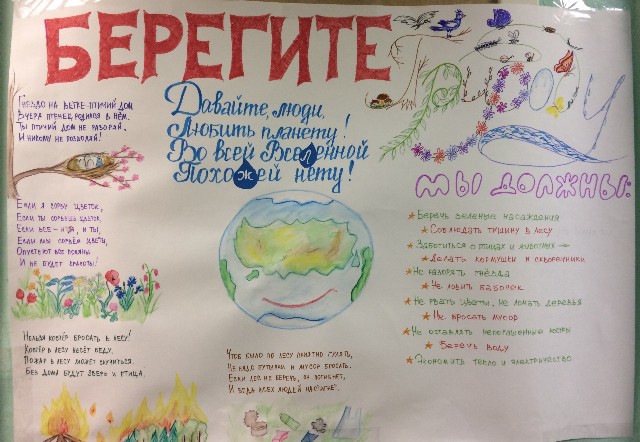 БЕРЕГИТЕ
Природу
Гнездо на ветке-птичий дом
Вчера птенец родился в нём.
Ты птичий дом не разоряй
И никому не позволяй!
Давайте, люди,
Любить планету!
Во всей Вселенной
Похожей нету!
Если я сорву цветок,
Если ты сорвёшь цветок,
Если все - и я, и ты,
Если мы сорвём цветы,
Опустеют все поляны
И не будет красоты!
Нельзя костёр бросать в лесу!
Костёр в лесу несёт беду.
Пожар в лесу может случиться.
Без дома будут зверь и птица.
Чтоб было по лесу приятно гулять,
Не надо бутылки и мусор бросать.
Если лес не беречь, он погибнет,
И беда всех людей настигнет.
МЫ ДОЛЖНЫ:
Беречь зеленые насаждения
Соблюдать тишину в лесу
Заботиться о птицах и животных -
Делать кормушки и скворечники
Не разорять гнёзда
Не ловить бабочек
Не рвать цветы, не ломать деревья
Не бросать мусор
Не оставлять непотушенные костры
Беречь воду
Экономить тепло и электричество